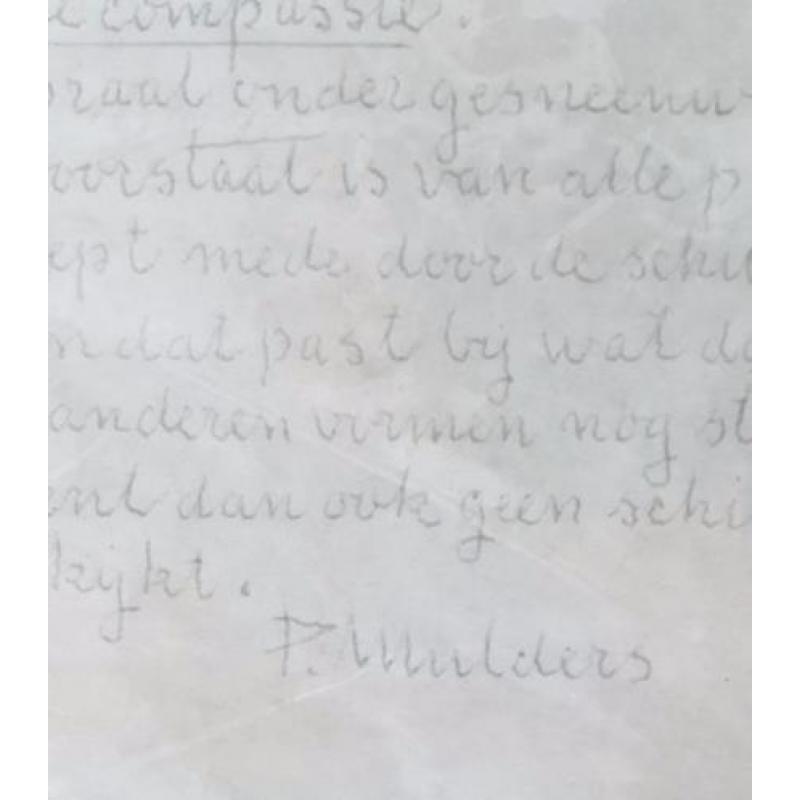 e compassie.
oraal ondergesneeuw
oorstaat is van alle p
ept mede door de schil
n dat past bij wat da
anderen vormen nog st
ent dan ook geen schi
kijkt.
P. Mulders